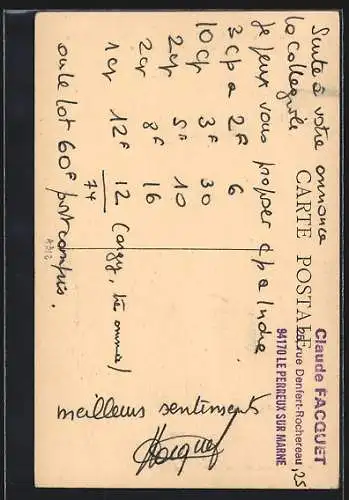 Suite à votre annonce
le collègue
CARTE POSTALE
Claude FACQUET
25, rue Denfert-Rochereau
94170 LE PERREUX SUR MARNE
Je peux vous proposer cpa Indre
3 cpa 2F 6
10 cp 3F 30
2 cp 5F 10
2 cp 8F 16
1 cp 12F 12 (Cangy, très animée)
74
ou le lot 60F port compris.
meilleurs sentiments
Facquet